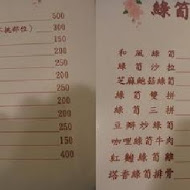 500
300
150
200
200
250
250
250
400
綠筍
和風綠筍
綠筍沙拉
芝麻鮑菇綠筍
綠筍雙拼
綠筍三拼
豆瓣炒綠筍
咖哩綠筍牛肉
紅麴綠筍雞
塔香綠筍排骨